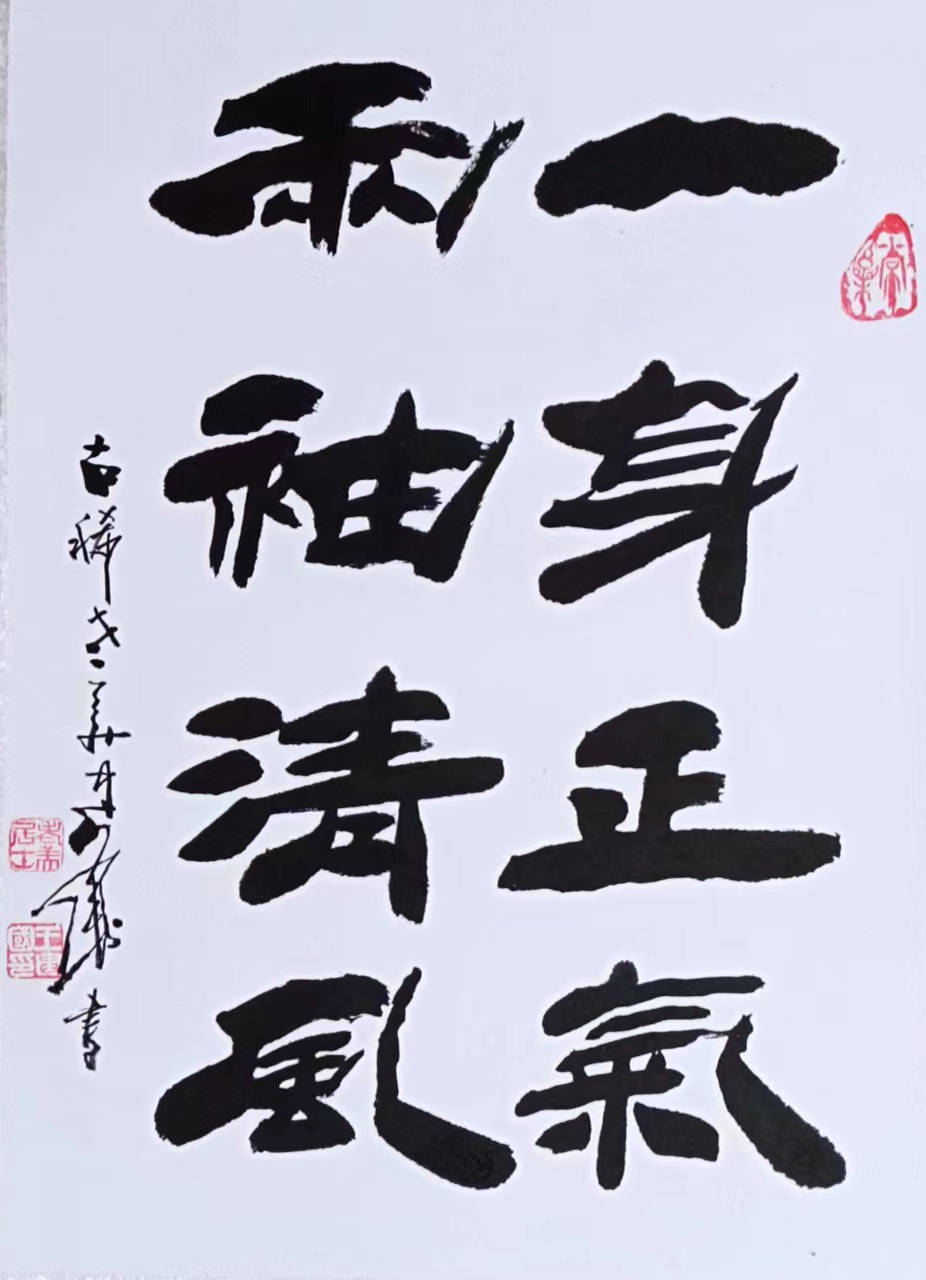 一身正氣
兩袖清風
古稀老人
書